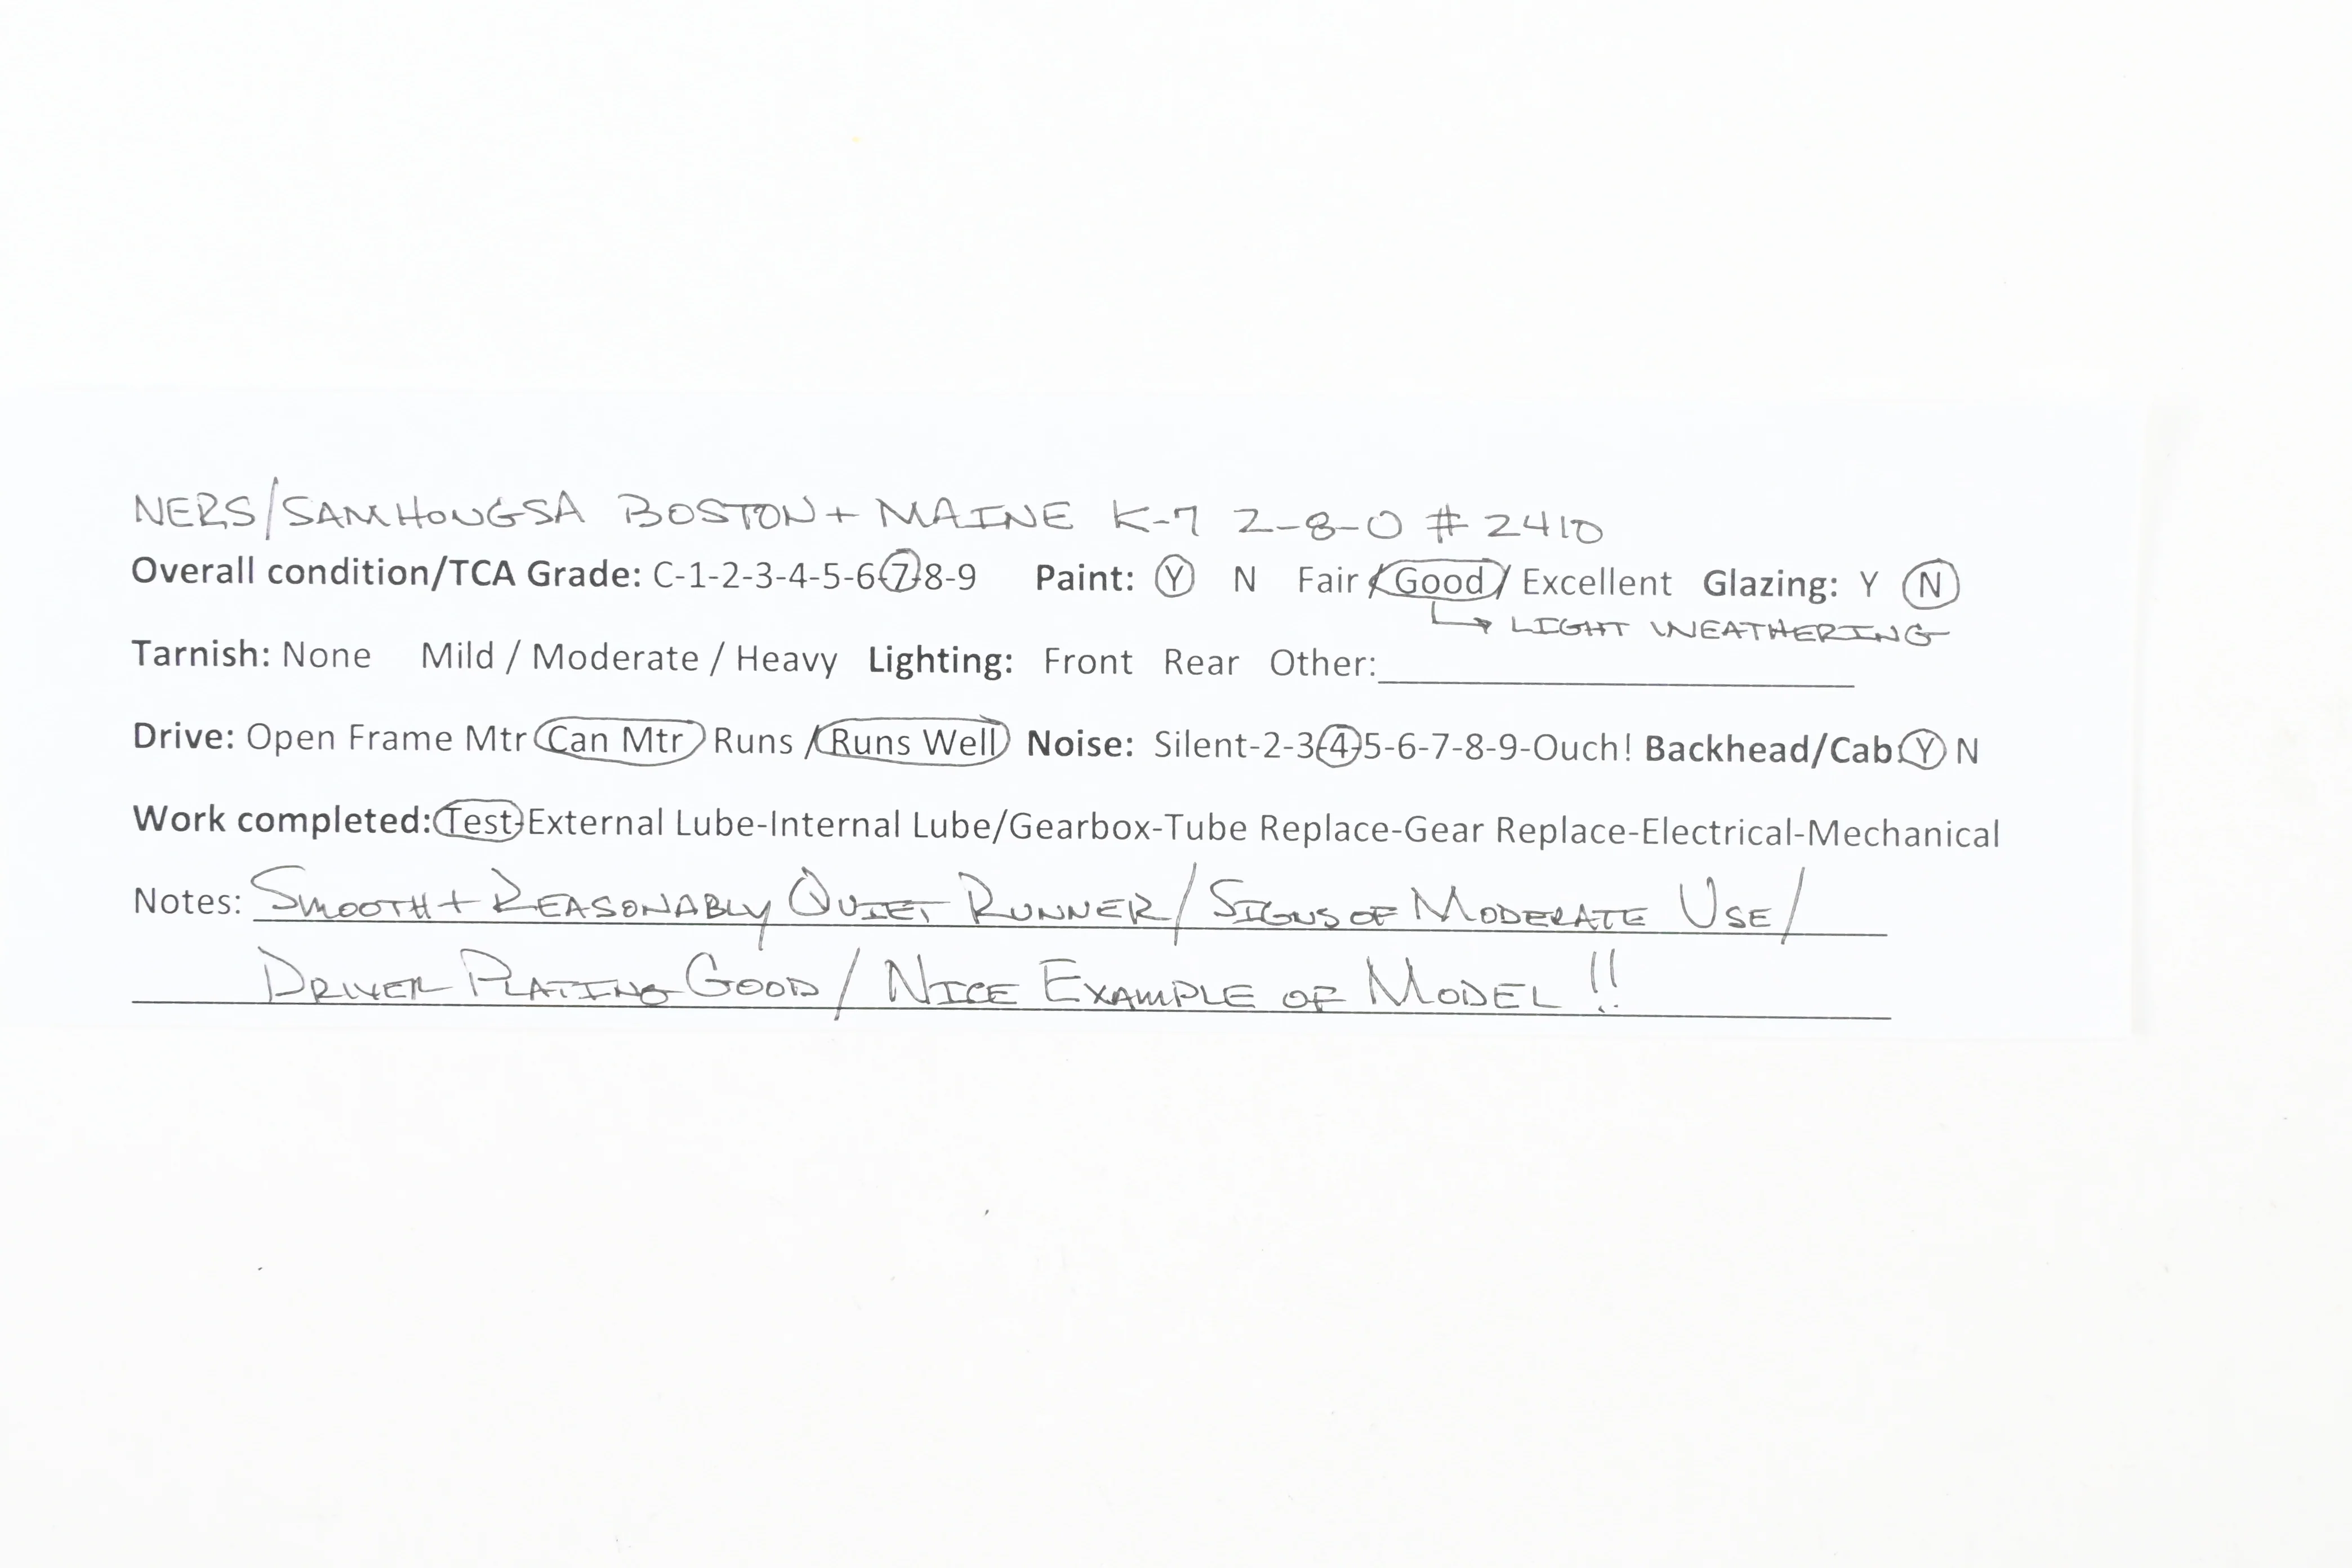 NERS/SAMHONGSA BOSTON + MAINE K-7 2-8-0 # 2410
Overall condition/TCA Grade: C-1-2-3-4-5-6-7-8-9 Paint: Y N Fair / Good / Excellent Glazing: Y N
LIGHT WEATHERING
Tarnish: None Mild / Moderate / Heavy Lighting: Front Rear Other:
Drive: Open Frame Mtr Can Mtr Runs / Runs Well Noise: Silent-2-3-4-5-6-7-8-9-Ouch! Backhead/Cab: Y N
Work completed: Test-External Lube-Internal Lube/Gearbox-Tube Replace-Gear Replace-Electrical-Mechanical
Notes: SMOOTH + REASONABLY QUIET RUNNER / SIGNS OF MODERATE USE /
DRIVER PLATING GOOD / NICE EXAMPLE OF MODEL !!